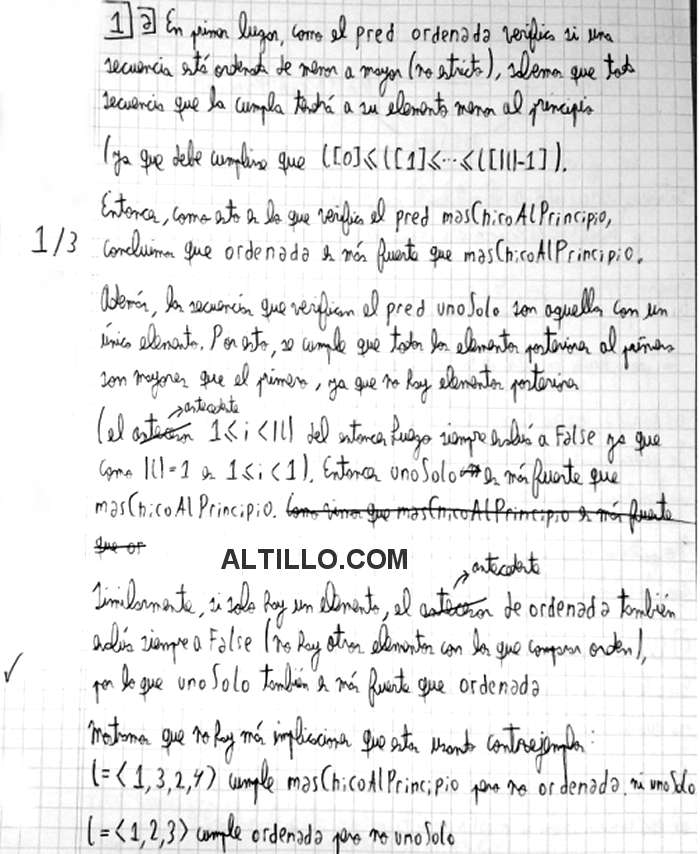 1 a En primer lugar, como el pred ordenada verifica si una
secuencia está ordenada de menor a mayor (no estricto), sabemos que toda
secuencia que la cumpla tendrá a su elemento menor al principio
(ya que debe cumplirse que l[0]≤l[1]≤...≤l[|l|-1]).
Entonces, como esto es lo que verifica el pred masChicoAlPrincipio,
1/3 concluimos que ordenada es más fuerte que masChicoAlPrincipio.
Además, las secuencias que verifican el pred unoSolo son aquellas con un
único elemento. Por esto, se cumple que todos los elementos posteriores al primero
son mayores que el primero, ya que no hay elementos posteriores
antecedente
(el 1≤i<|l| del entonces luego siempre evalúa a False ya que
como |l|=1 es 1≤i<1). Entonces unoSolo es más fuerte que
masChicoAlPrincipio. Como vimos que masChicoAlPrincipio es más fuerte
que or
ALTILLO.COM
antecedente
Similarmente, si solo hay un elemento, el de ordenada también
evalúa siempre a False (no hay otros elementos con los que comparar orden),
✓ por lo que unoSolo también es más fuerte que ordenada
Mostramos que no hay más implicaciones que estas usando contraejemplos:
l=⟨1,3,2,4⟩ cumple masChicoAlPrincipio pero no ordenada ni unoSolo
l=⟨1,2,3⟩ cumple ordenada pero no unoSolo